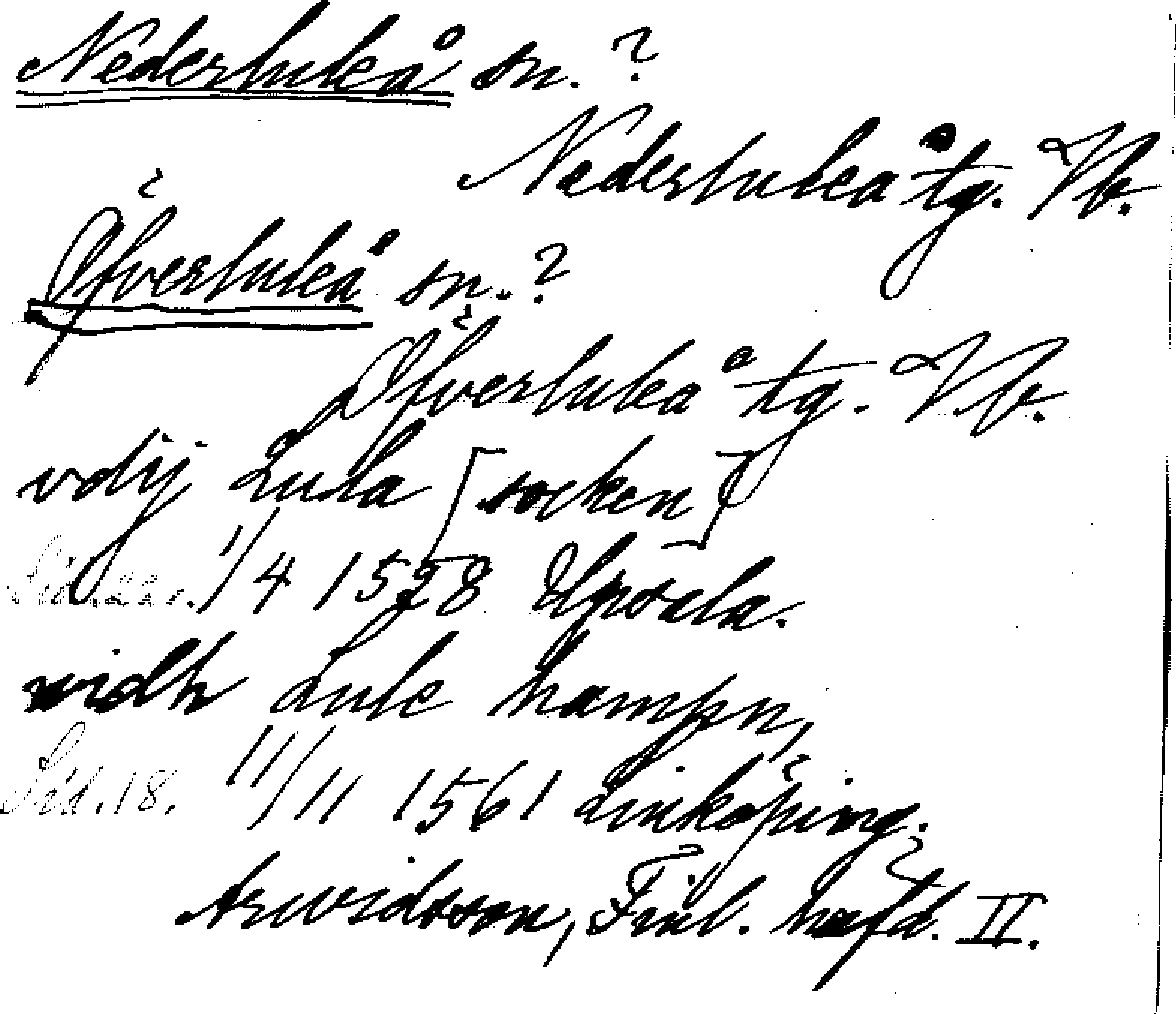 Nederluleå sn. ?
Nederluleå tg. Vb.
Öfverluleå sn. ?
Öfverluleå tg. Vb.
vdij Lula [socken]
1/4 1528 Upsala.
widh Lule hampn,
Sid. 18. 11/11 1561 Linköping.
Arwidsson, Finl. häfd. II.